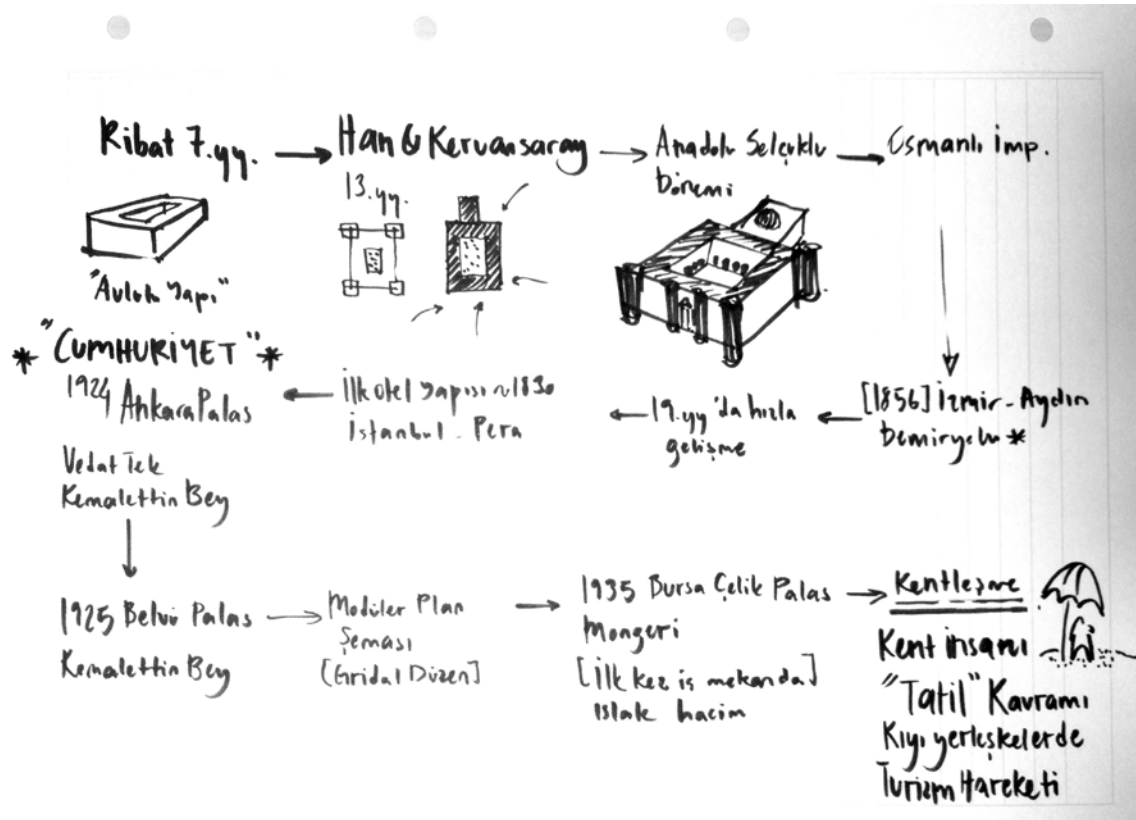 Ribat 7.yy.
Han & Kervansaray
13.yy.
Anadolu Selçuklu
Dönemi
Osmanlı imp.
"Avlulu Yapı"
*"CUMHURİYET"*
1924 Ankara Palas
Vedat Tek
Kemalettin Bey
İlk otel yapısı ~1830
İstanbul - Pera
19.yy'da hızla
gelişme
[1856] İzmir - Aydın
Demiryolu *
1925 Belvü Palas
Kemalettin Bey
Modüler Plan
Şeması
[Gridal Düzen]
1935 Bursa Çelik Palas
Mongeri
[İlk kez iç mekanda]
ıslak hacim
Kentleşme
Kent insanı
"Tatil" Kavramı
Kıyı yerleşkelerde
Turizm Hareketi